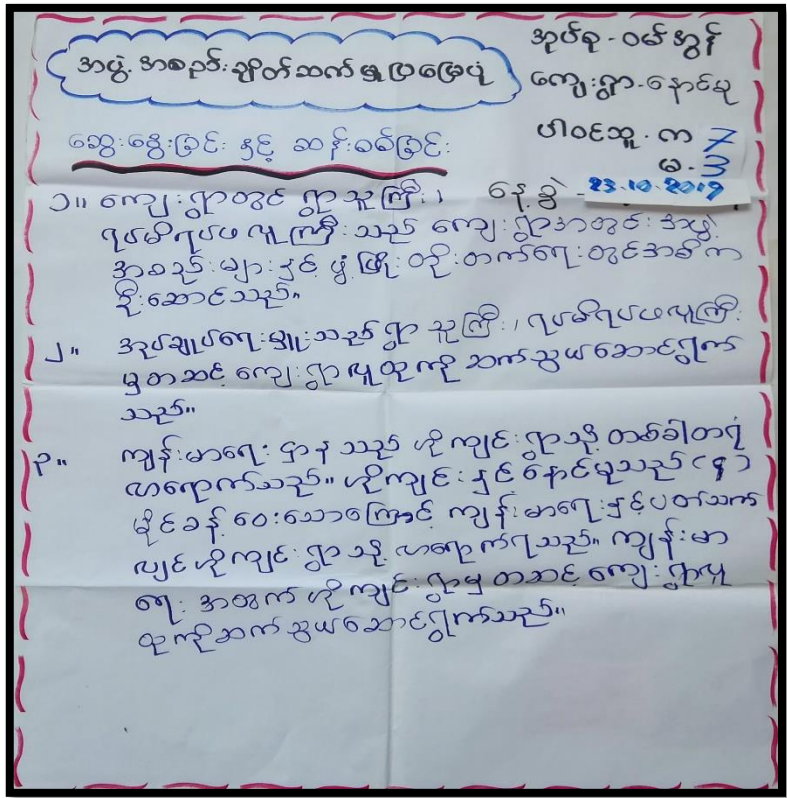 အဖွဲ့အစည်းချိတ်ဆက်မှုပြမြေပုံ
အုပ်စု - ဝမ်အွန်
ကျေးရွာ - နောင်မု
ပါဝင်သူ - က 7
မ - 3
နေ့စွဲ - 23.10.2019
ဆွေးနွေးခြင်း နှင့် ဆန်းစစ်ခြင်း
၁။ ကျေးရွာတွင် ရွာသူကြီး၊
ရပ်မိရပ်ဖလူကြီးသည် ကျေးရွာအတွင်းအဖွဲ့
အစည်းများနှင့် ဖွံ့ဖြိုးတိုးတက်ရေးတွင်အဓိက
ဦးဆောင်သည်။
၂။ အုပ်ချုပ်ရေးမှူးသည် ရွာသူကြီး၊ ရပ်မိရပ်ဖလူကြီး
မှတဆင့် ကျေးရွာလူထုကိုဆက်သွယ်ဆောင်ရွက်
သည်။
၃။ ကျန်းမာရေးဌာနသည် ဟိုကျင်းရွာသို့ တစ်ခါတရံ
လာရောက်သည်။ ဟိုကျင်းနှင့်နောင်မုသည် (၄)
မိုင်ခန့်ဝေးသောကြောင့် ကျန်းမာရေးနှင့်ပတ်သက်
လျှင် ဟိုကျင်းရွာသို့ လာရောက်ရသည်။ ကျန်းမာ
ရေးအတွက် ဟိုကျင်းရွာမှတဆင့် ကျေးရွာလူ
ထုကိုဆက်သွယ်ဆောင်ရွက်သည်။